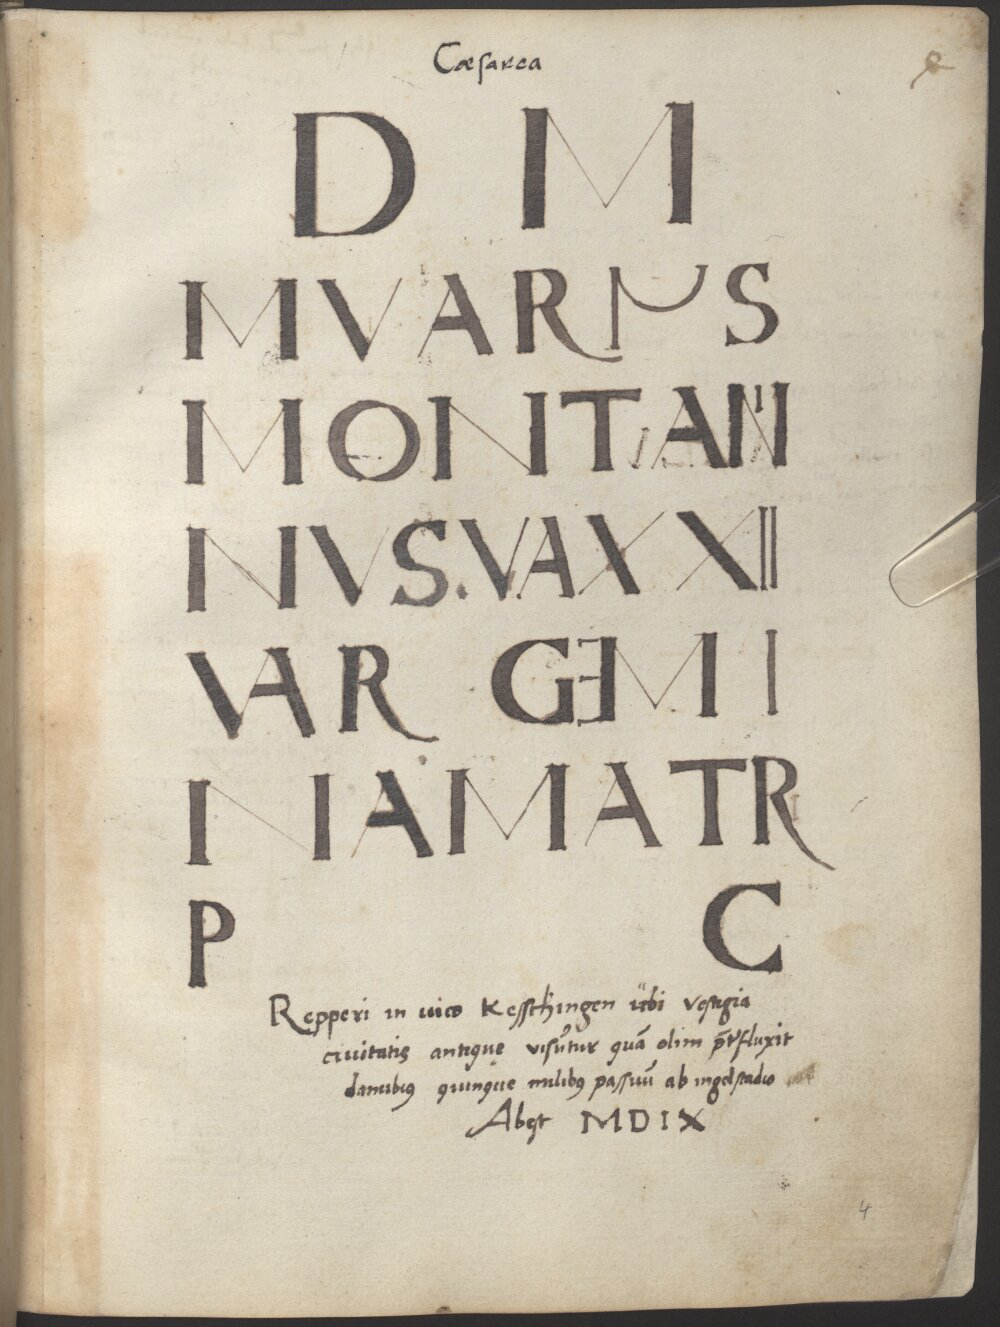 Cæsarea
D M
MVARIVS
MONTAN
NVS.VAXXII
VAR GEMI
NAMATR
P C
Repperi in uico Kesschingen ubi vestigia
ciuitatis antique visũtur quã olim fluxit
danubiꝰ quinque milibꝰ passuũ ab ingelstadio
Abest MDIX
4